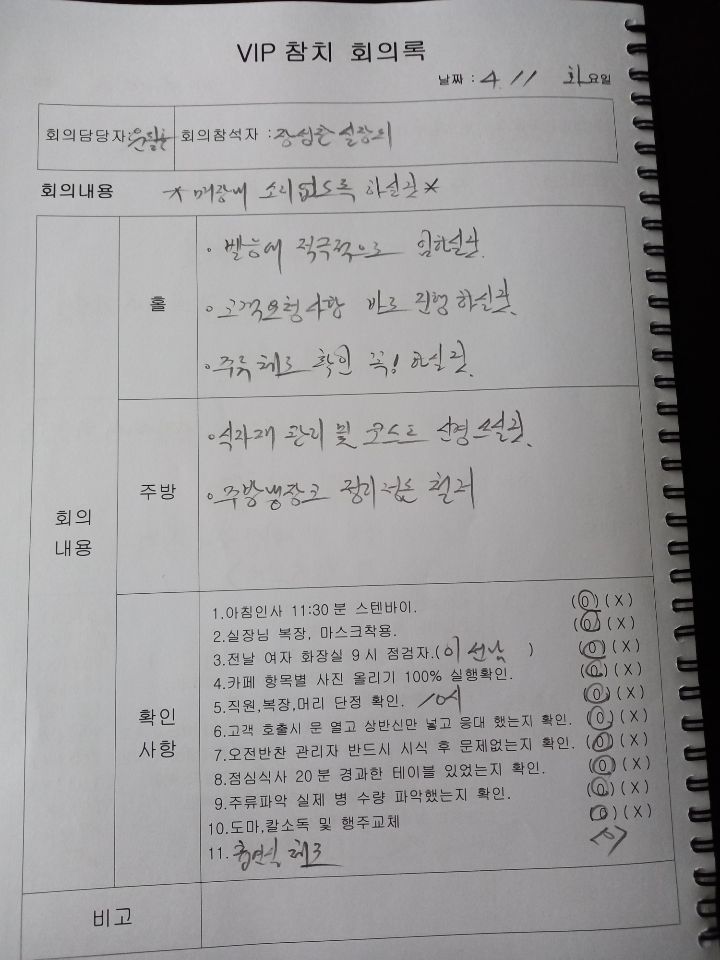 VIP 참치 회의록
날짜 : 4. 11 화요일
회의담당자:
회의참석자 :
회의내용 * 매장내 소리없도록 하실것 *
회의
내용
홀
· 발능에 적극적으로 임하실것.
· 고객요청사항 바로 진행하실것.
· 주류 체크 확인 꼭! 하실것.
주방
· 식자재 관리 및 코스트 신경쓰실것.
· 주방냉장고 정리정돈 철저
확인
사항
1.아침인사 11:30분 스텐바이. (O) (X)
2.실장님 복장, 마스크착용. (O) (X)
3.전날 여자 화장실 9시 점검자.(이선남) (O) (X)
4.카페 항목별 사진 올리기 100% 실행확인. (O) (X)
5.직원,복장,머리 단정 확인. 10시 (O) (X)
6.고객 호출시 문 열고 상반신만 넣고 응대 했는지 확인. (O) (X)
7.오전반찬 관리자 반드시 시식 후 문제없는지 확인. (O) (X)
8.점심식사 20분 경과한 테이블 있었는지 확인. (O) (X)
9.주류파악 실제 병 수량 파악했는지 확인. (O) (X)
10.도마,칼소독 및 행주교체 (O) (X)
11. 흡연실 체크 (O)
비고